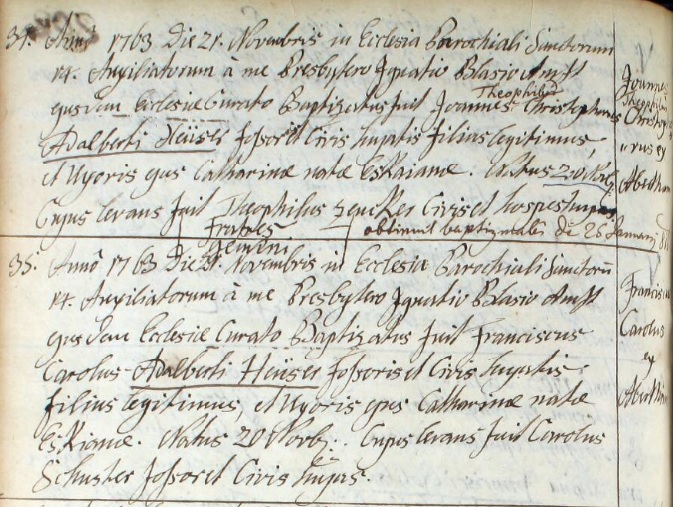 34. Anno 1763 Die 21. Novembris in Ecclesia Parochiali Sanctorum
14. Auxiliatorum à me Presbytero Ignatio Blasio
ejusdem Ecclesiæ Curato Baptizatus fuit Joannes Theophilus Christophorus
Adalberti Heüser fossoris et Civis hujatis filius legitimus
et Uxoris ejus Catharinæ natæ Eskianæ. Natus 20 Novbr.
Cujus levans fuit Theophilus Civis et hospes hujas.
obtinuit baptizmales die 26 Januarij
Fratres
Gemeni
35. Anno 1763 Die 21. Novembris in Ecclesia Parochiali Sanctorū
14. Auxiliatorum à me Presbytero Ignatio Blasio
ejusdem Ecclesiæ Curato Baptizatus fuit Franciscus
Carolus Adalberti Heüser fossoris et Civis hujatis
filius legitimus, et Uxoris ejus Catharinæ natæ
Eskianæ. Natus 20 Novb. Cujus levans fuit Carolus
Schuster fossor et Civis hujas.
Joannes
Theophilus
Christop
orus ex
Francis
Carolus
ex